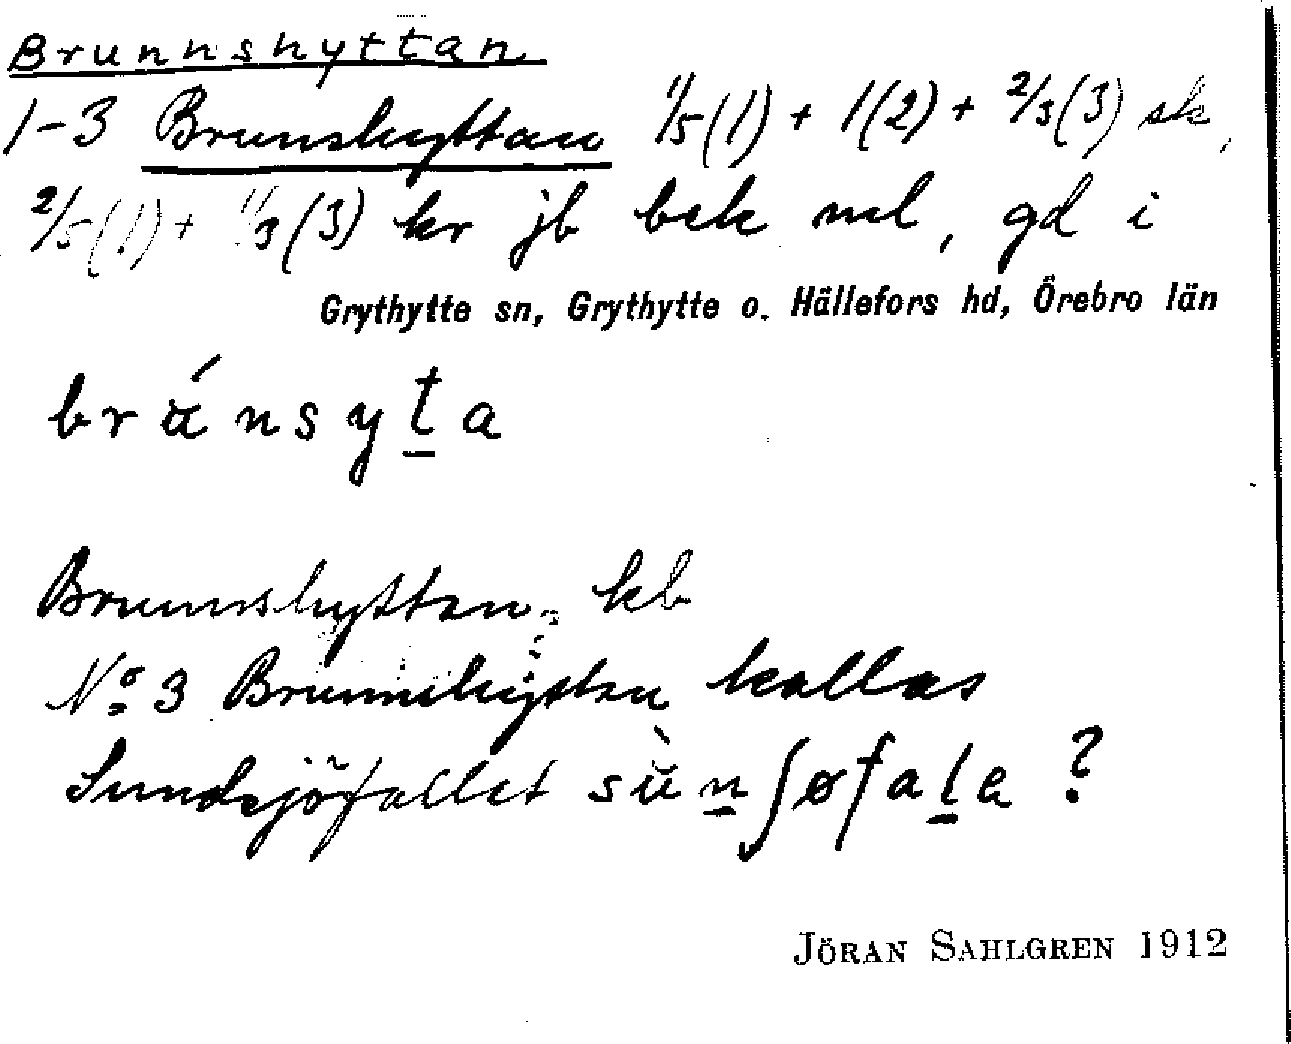 Brunnshyttan
1-3 Brunshyttan 1/5(1) + 1(2) + 2/3(3) sk,
2/5(1) + 1/3(3) kr jb bek ml, gd i
Grythytte sn, Grythytte o. Hällefors hd, Örebro län
Brunnshyttan kb
No 3 Brunnshyttan kallas
Sundsjöfallet ?
JÖRAN SAHLGREN 1912